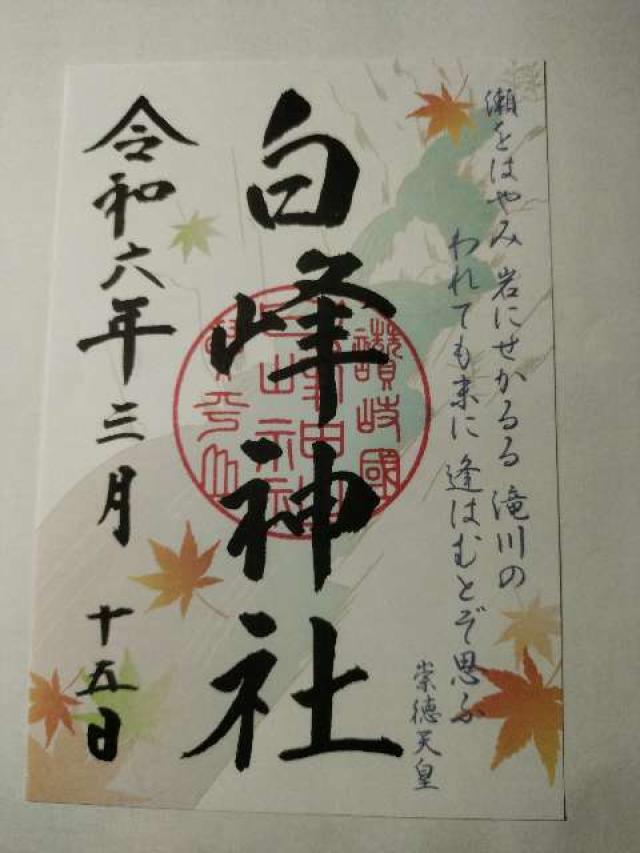 瀬をはやみ 岩にせかるる 滝川の
われても末に 逢はむとぞ思ふ
崇徳天皇
白峰神社
讃岐國
令和六年三月十五日